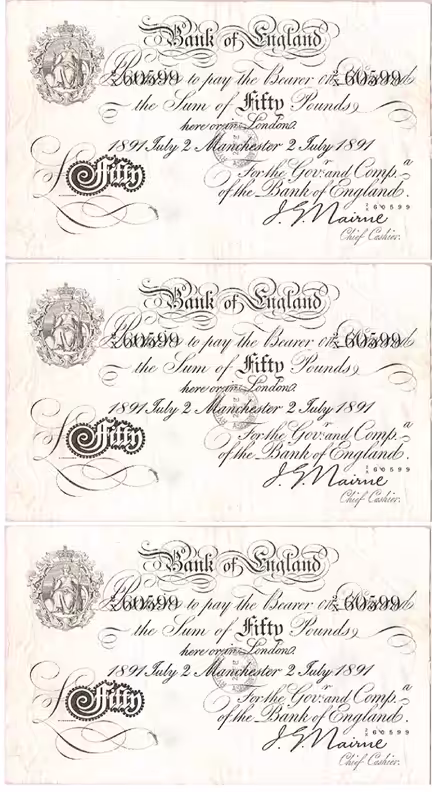 Bank of England
60599 to pay the Bearer on 60599
the Sum of Fifty Pounds
here or in London
1891 July 2 Manchester 2 July 1891
For the Govr. and Compa.
Fifty
of the Bank of England.
J. G. Nairne
60599
Chief Cashier.
Bank of England
60599 to pay the Bearer on 60599
the Sum of Fifty Pounds
here or in London
1891 July 2 Manchester 2 July 1891
For the Govr. and Compa.
Fifty
of the Bank of England.
J. G. Nairne
60599
Chief Cashier.
Bank of England
60599 to pay the Bearer on 60599
the Sum of Fifty Pounds
here or in London
1891 July 2 Manchester 2 July 1891
For the Govr. and Compa.
Fifty
of the Bank of England.
J. G. Nairne
60599
Chief Cashier.